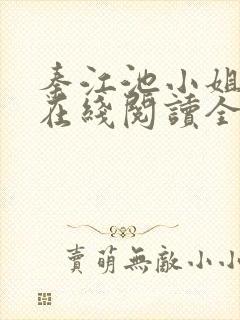 秦江池小姐
在綫閱讀全
賣萌無敵小小